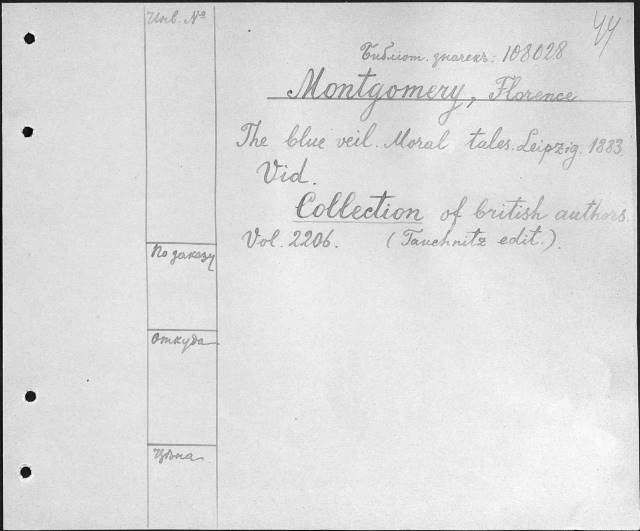 Инв. №
44
Библіот. значекъ: 108028
Montgomery, Florence.
The blue veil. Moral tales. Leipzig. 1883.
Vid.
Collection of british authors.
Vol. 2206. (Tauchnitz edit.).
По заказу
Откуда
Цѣна